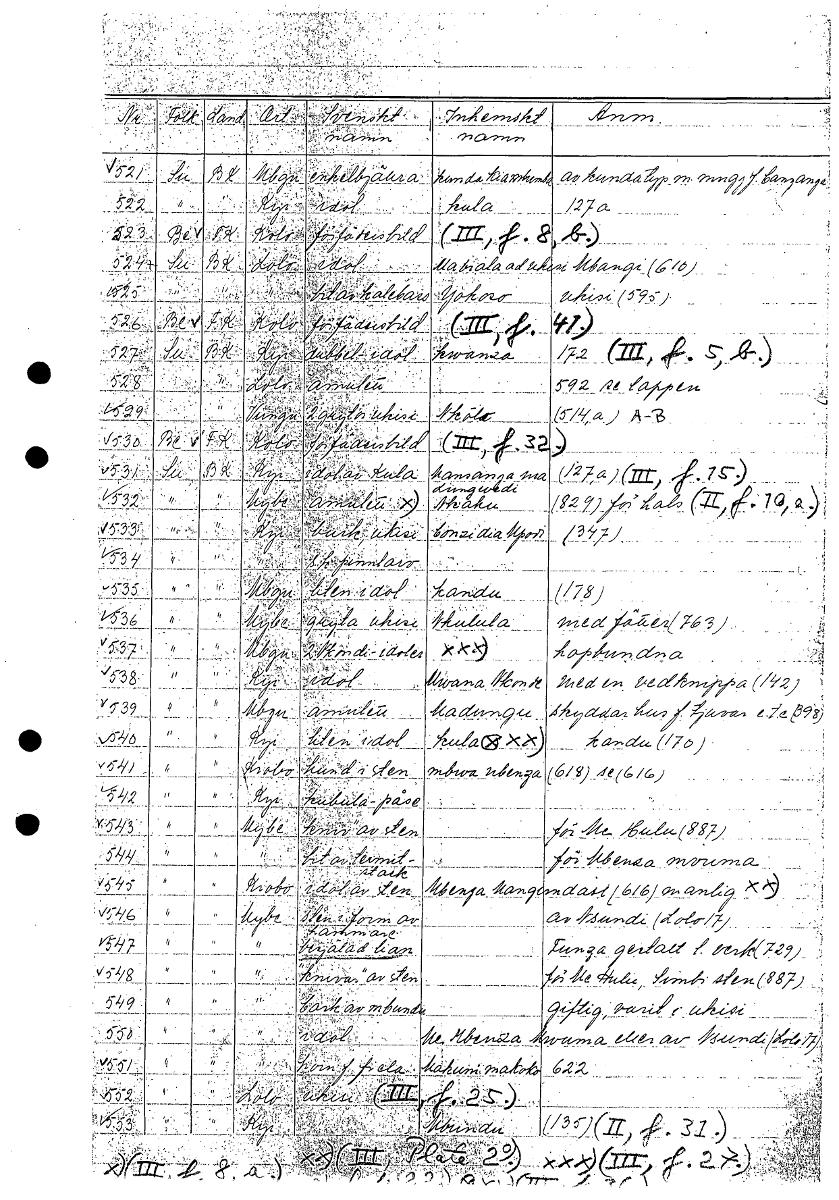 Nr Folk Land Ort Svenskt namn Inhemskt namn Anm.
√521 Su BK Mbgu enkelbjäura kunda av kunda typ m. mngz f. Canzanga
522 " " Kyi idol kula 127a
523 Be√ FK Kolo förfädersbild (III, f. 8, b.)
524+ Su BK Lolo idol Mabiala ad ukisi Mbangi (610)
√525 " " bit av kalebass Yokoso ukisi (595)
526 Be√ FK Kolo förfädersbild (III, f. 41.)
527 Su BK Kyi dubbel-idol kwanza 172 (III, f. 5, b.)
528 " Lolo amulett 592 se lappen
√529 " Vungu 2 grytor ukisi Nkoto (514,a) A-B
√530 Be √ FK Kolo förfädersbild (III, f. 32)
√531 Su BK Kyi idol av kula Mansanga ma dungwedi (127a) (III, f. 15.)
√532 " " Nybe amulett x) Nkaku (829) för hals (II, f. 10, a.)
√533 " " Kyi burk ukisi bonzi dia Mpodi (347)
√534 " "
√535 " " Mbgu liten idol kandu (178)
√536 " " Nybe gryta ukisi Nkulula med fötter (763)
√537 " " Mbgu 2 Nkondi-idoler xxx) hopbundna
√538 " " Kyi idol Mwana Nkonde med en vedknippa (142)
√539 " " Mbgu amulett Madungu skyddar hus f. tjuvar etc (398)
√540 " " Kyi liten idol kula ⊗xx) kandu (170)
√541 " " Krobo hund i sten mbwa mbenza (618) se (616)
√542 " " Kyi kubula-påse
x543 " " Nybe "kniv" av sten för Me Hulu (887)
544 " " " bit av termit-stack för Mbensa mvuma
√545 " " Krobo idol av sten Mbenza (616) manlig xx)
√546 " " Nybe sten i form av hammare av Nsundi (Lolo 17)
√547 " " " lian Funza gestalt l. verk (729)
√548 " " " "knivar" av sten för Me Hulu, Simbi sten (887)
549 " " " bark av mbundu giftig, varit i ukisi
550 " " " idol Me Mbenza Mvuma eller av Nsundi (Lolo 17)
√551 " " " horn f. fiela Makuni makoko 622
√552 " " Lolo ukisi (III, f. 25.)
√553 " " Kyi Mbundu (135) (II, f. 31.)
x) (III. f. 8. a.) xx) (III, Plate 29.) xxx) (III, f. 27.)